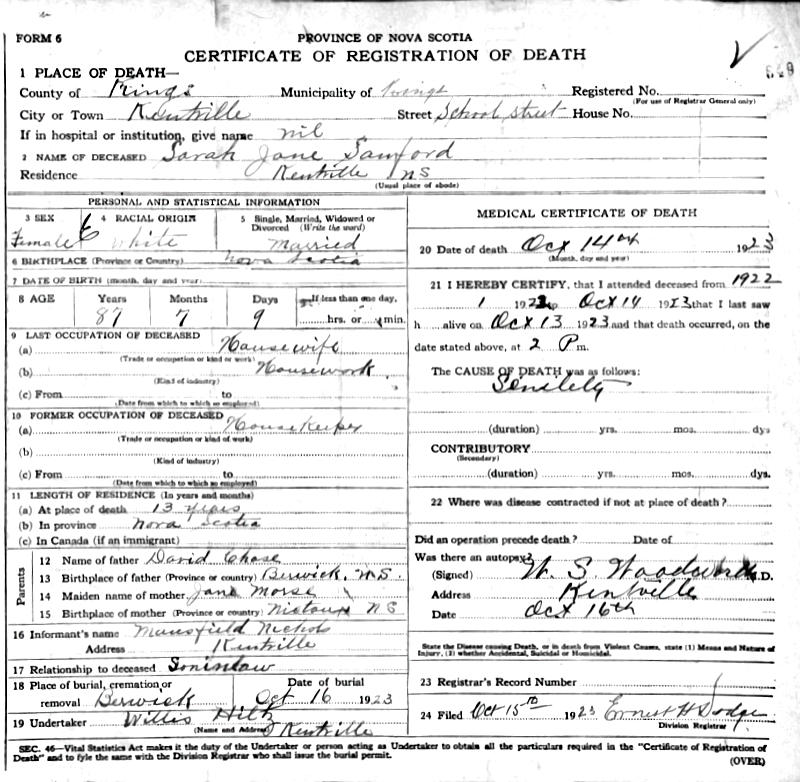 FORM 6
PROVINCE OF NOVA SCOTIA
CERTIFICATE OF REGISTRATION OF DEATH
1 PLACE OF DEATH—
County of Kings Municipality of Kings Registered No.
(For use of Registrar General only)
City or Town Kentville Street School Street House No.
If in hospital or institution, give name nil
2 NAME OF DECEASED Sarah Jane Sanford
Residence Kentville NS
(Usual place of abode)
PERSONAL AND STATISTICAL INFORMATION
3 SEX 4 RACIAL ORIGIN 5 Single, Married, Widowed or Divorced (Write the word)
Female White Married
6 BIRTHPLACE (Province or Country) Nova Scotia
7 DATE OF BIRTH (month, day and year)
8 AGE Years Months Days If less than one day,
87 7 9 hrs. or min.
9 LAST OCCUPATION OF DECEASED
(a) Housewife
(Trade or occupation or kind of work)
(b) Housework
(Kind of industry)
(c) From to
(Date from which to which so employed)
10 FORMER OCCUPATION OF DECEASED
(a) Housekeeper
(Trade or occupation or kind of work)
(b)
(Kind of industry)
(c) From to
(Date from which to which so employed)
11 LENGTH OF RESIDENCE (In years and months)
(a) At place of death 13 years
(b) In province Nova Scotia
(c) In Canada (if an immigrant)
Parents
12 Name of father David Chase
13 Birthplace of father (Province or country) Berwick, N.S.
14 Maiden name of mother Jane Morse
15 Birthplace of mother (Province or country) Nictaux NS
16 Informant's name Mansfield Nichols
Address Kentville
17 Relationship to deceased Soninlaw
18 Place of burial, cremation or removal Berwick Date of burial Oct 16 1923
19 Undertaker Willis Hiltz
(Name and Address) Kentville
MEDICAL CERTIFICATE OF DEATH
20 Date of death Oct 14th 1923
(Month, day and year)
21 I HEREBY CERTIFY, that I attended deceased from 1922
1 192 Oct 14 1923 that I last saw
h alive on Oct 13 1923 and that death occurred, on the
date stated above, at 2 P m.
The CAUSE OF DEATH was as follows:
Senilety
(duration) yrs. mos. dys
CONTRIBUTORY
(Secondary)
(duration) yrs. mos. dys.
22 Where was disease contracted if not at place of death?
Did an operation precede death? Date of
Was there an autopsy?
(Signed) W. S. Woodworth M.D.
Address Kentville
Date Oct 16th
State the Disease causing Death, or in death from Violent Causes, state (1) Means and Nature of
Injury, (2) whether Accidental, Suicidal or Homicidal.
23 Registrar's Record Number
24 Filed Oct 15th 1923 Ernest H Dodge
Division Registrar
SEC. 46—Vital Statistics Act makes it the duty of the Undertaker or person acting as Undertaker to obtain all the particulars required in the "Certificate of Registration of
Death" and to fyle the same with the Division Registrar who shall issue the burial permit.
(OVER)